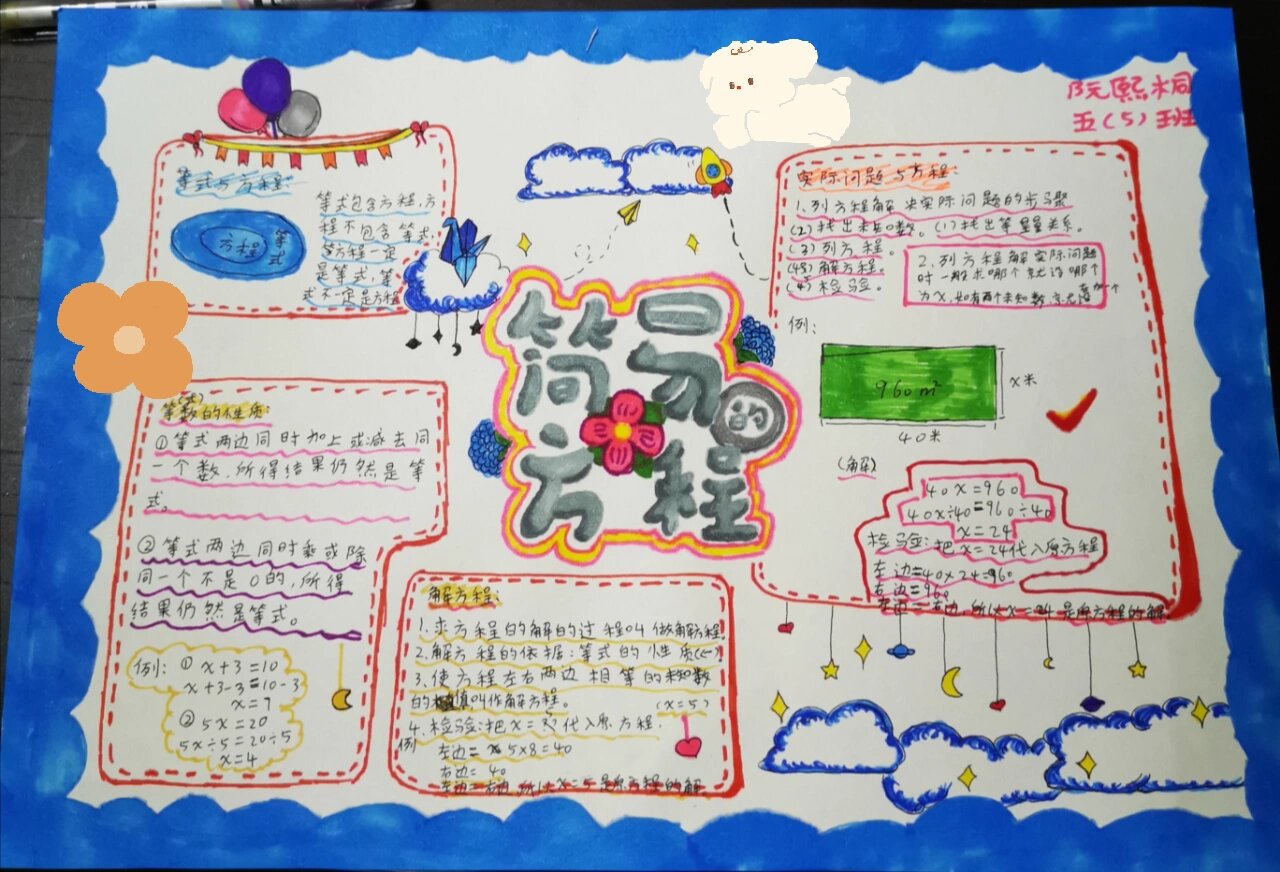 阮熙桐
五(5)班
简易的方程
等式与方程:
等式包含方程,方
程不包含等式,
等方程一定
是等式,等
式不一定是方程
方程 等式
等数的性质:
①等式两边同时加上或减去同
一个数,所得结果仍然是等
式。
②等式两边同时乘或除
同一个不是0的,所得
结果仍然是等式。
例: ① x+3=10
x+3-3=10-3
x=7
② 5x=20
5x÷5=20÷5
x=4
解方程:
1.求方程的解的过程叫做解方程.
2.解方程的依据:等式的性质
3.使方程左右两边相等的未知数
的值叫作解方程。
(x=5)
4.检验:把x= 代入原方程.
例 左边= 5×8=40
右边= 40
左边=右边 所以x=5是原方程的解
实际问题与方程:
1.列方程解决实际问题的步骤
(2)找出未知数。(1)找出等量关系。
(3)列方程。
解方程。
检验。
2.列方程解实际问题
时一般求哪个就设哪个
为x,如有两个未知数,
例:
960m²
x米
40米
(解)
40x=960
40x÷40=960÷40
x=24
检验:把x=24代入原方程
左边=40×24=960
右边=960
左边=右边 所以x=24是原方程的解